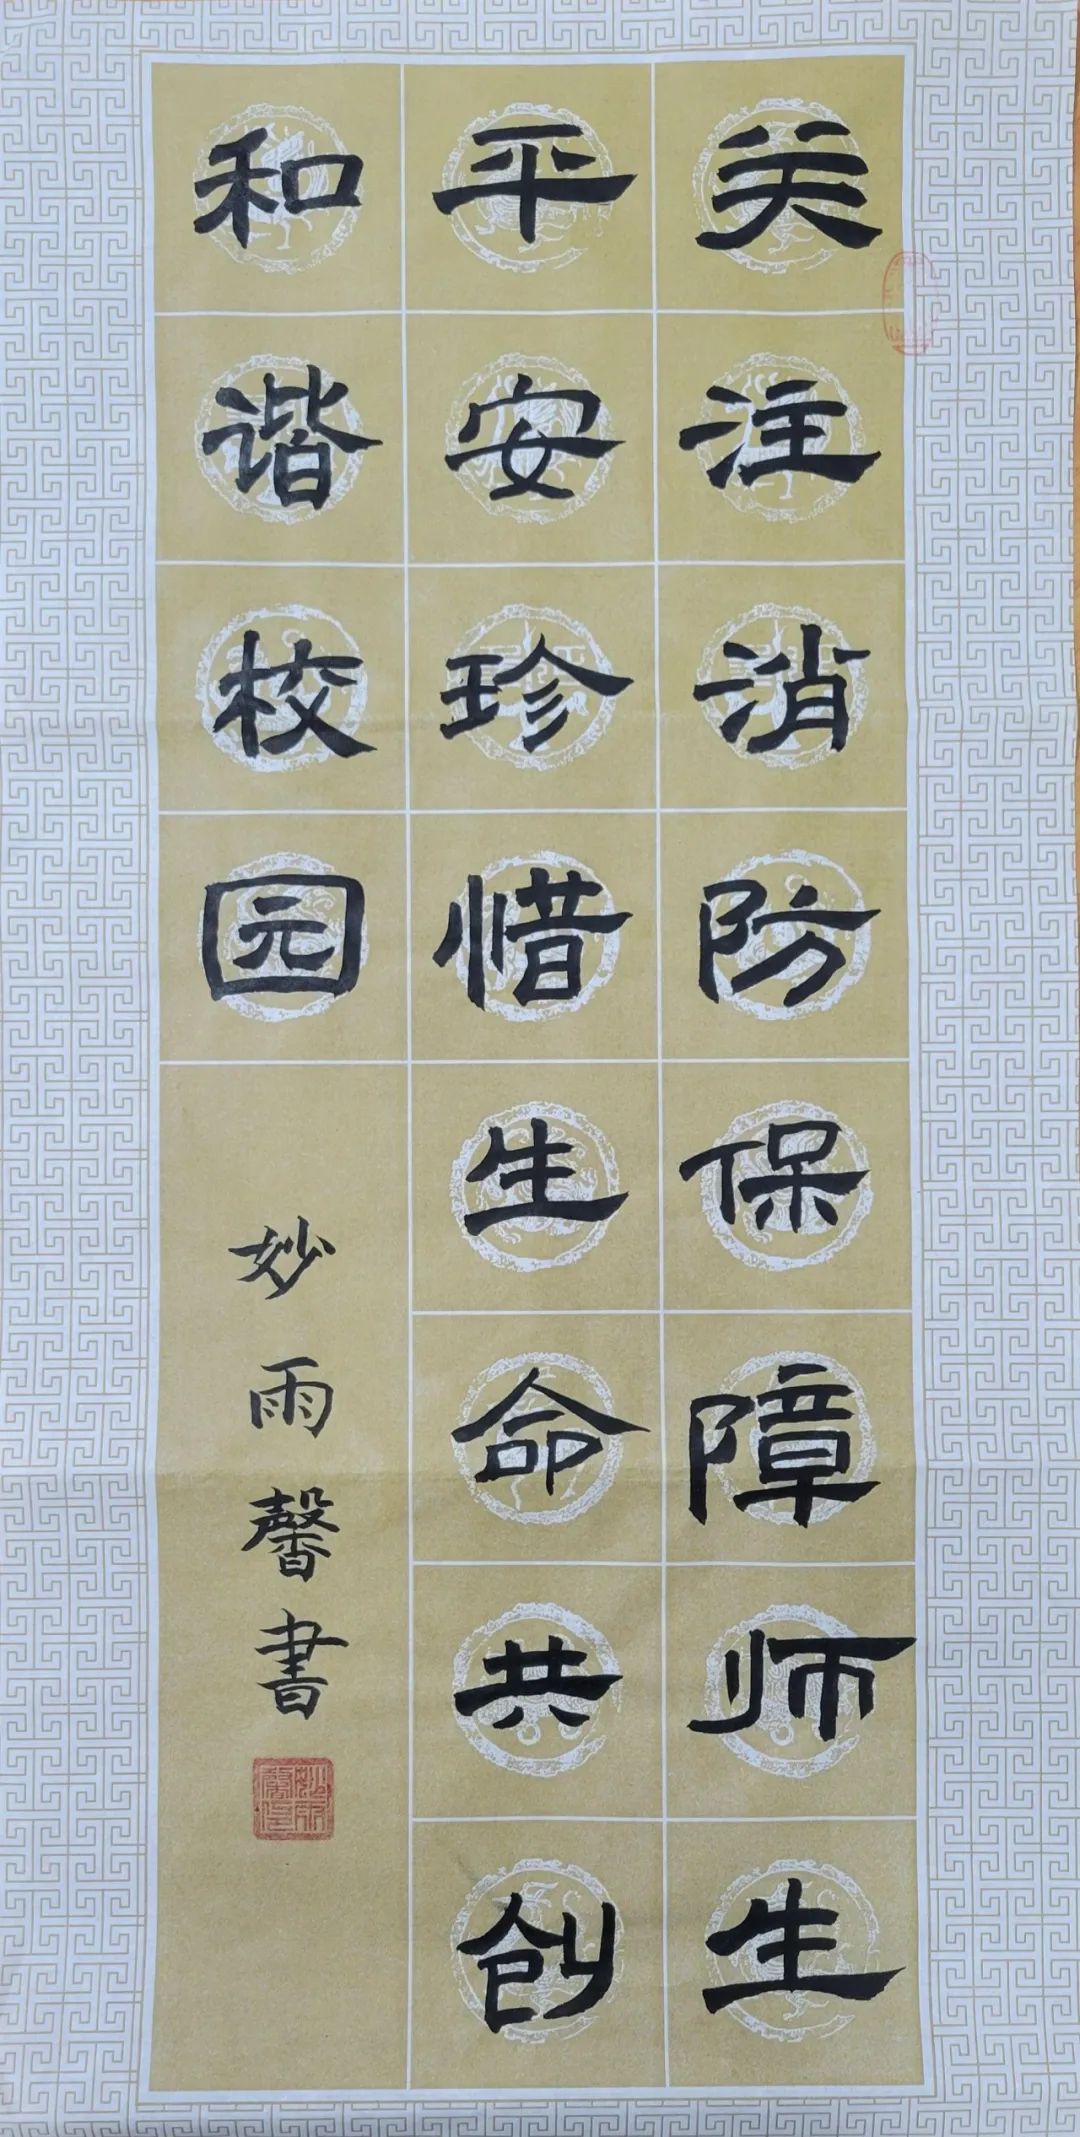 关注消防保障师生
平安珍惜生命共创
和谐校园
妙雨馨書